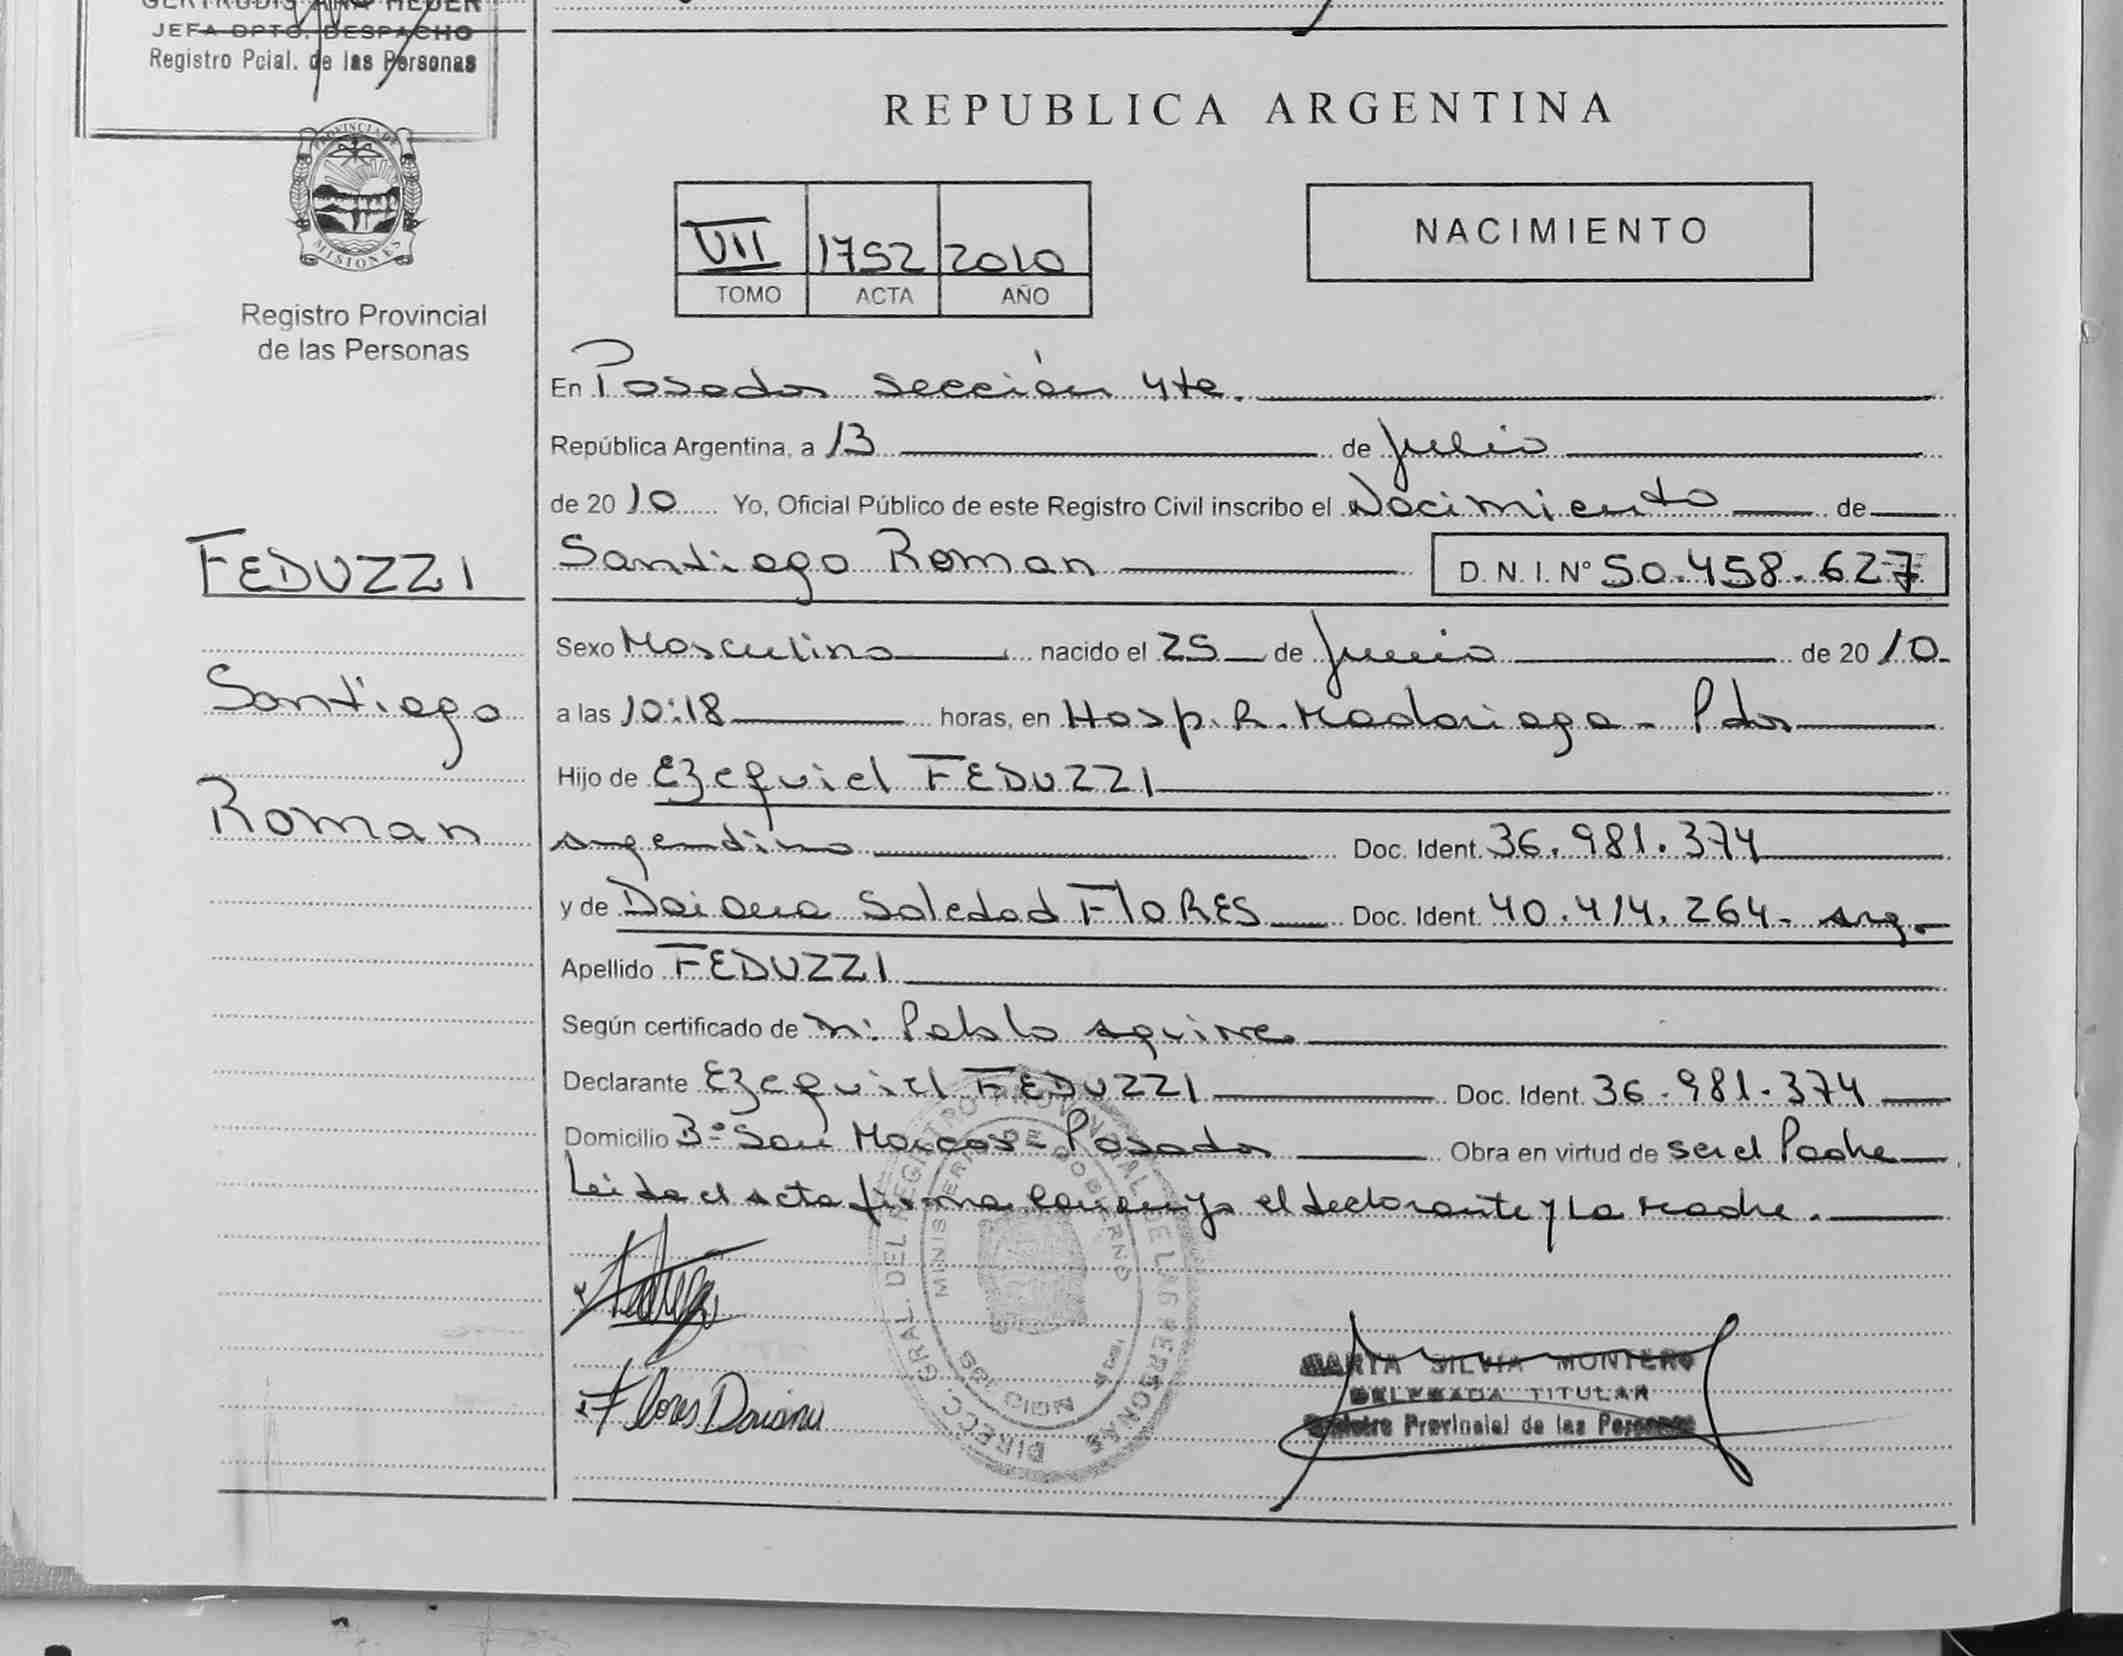 GERTRUDIS ANA HEDER
JEFA DPTO. DESPACHO
Registro Pcial. de las Personas
PROVINCIA DE
MISIONES
Registro Provincial
de las Personas
FEDUZZI
Santiago
Roman
REPUBLICA ARGENTINA
VII 1752 2010
TOMO ACTA AÑO
NACIMIENTO
En Posadas sección 4ta.
República Argentina, a 13 de Julio
de 2010 Yo, Oficial Público de este Registro Civil inscribo el Nacimiento de
Santiago Roman D.N.I. Nº 50.458.627
Sexo Masculino nacido el 25 de Junio de 2010.
a las 10:18 horas, en Hosp. R. Madariaga - Pdas
Hijo de Ezequiel FEDUZZI
argentino Doc. Ident. 36.981.374
y de Daiana Soledad FloRES Doc. Ident. 40.414.264- arg.-
Apellido FEDUZZI
Según certificado de Pablo Aguirre
Declarante Ezequiel FEDUZZI Doc. Ident. 36.981.374
Domicilio Bº San Marcos - Posadas Obra en virtud de ser el Padre
Leida el acta firma conmigo el declarante y La Madre.
Flores Daiana
DIRECC. GRAL. DEL REGISTRO PROVINCIAL DE LAS PERSONAS
MINISTERIO DE GOBIERNO
MARTA SILVIA MONTERO
DELEGADA TITULAR
Registro Provincial de las Personas